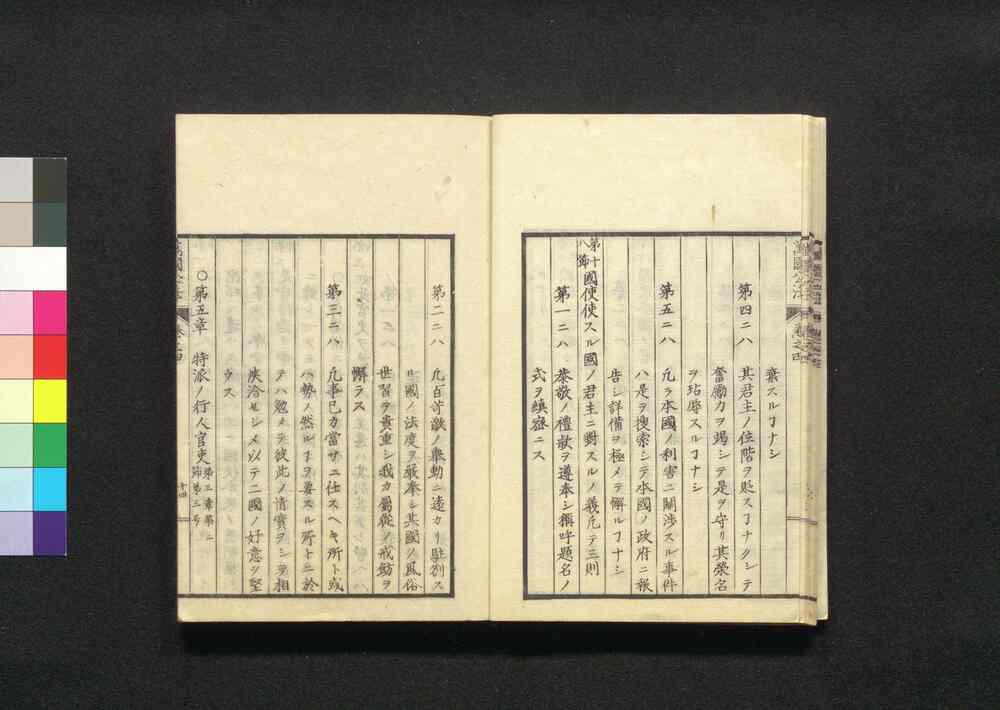 棄スルヿナシ
第四ニハ 其君主ノ位階ヲ貶スヿナクシテ
奮勵力ヲ竭シテ是ヲ守リ其榮名
ヲ玷辱スルヿナシ
第五ニハ 凡ラ本國ノ利害ニ關渉スル事件
ハ是ヲ搜索シテ本國ノ政府ニ報
告シ詳備ヲ極メテ懈ルヿナシ
第十八節 國使使スル國ノ君主ニ對スルノ義凡テ三則
第一ニハ 恭敬ノ禮敬ヲ遵奉シ稱呼題名ノ
式ヲ縝密ニス
第二ニハ 凡百苛激ノ擧動ニ遠カリ駐劄ス
ル國ノ法度ヲ嚴奉シ其國ノ風俗
世習ヲ貴重シ我カ屬從ノ戒飭ヲ
懈ラス
第三ニハ 凡事已カ當サニ仕スヘキ所ト或
ハ勢ノ然ルヿヲ要スル所トニ於
テハ勉メテ彼此ノ情實ヲシテ相
浹洽セシメ以テ二國ノ好意ヲ堅
ウス
○第五章 特派ノ行人官吏 第三章第二節第二号
萬國公法 卷之四 十四